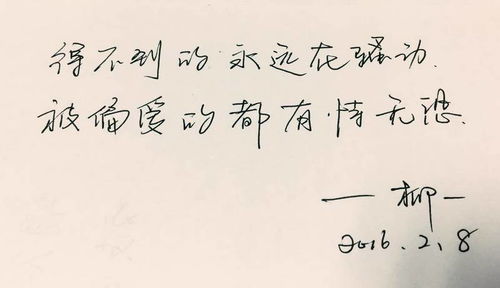 得不到的永远在骚动.
被偏爱的都有恃无恐.
—柳一
2016.2.8